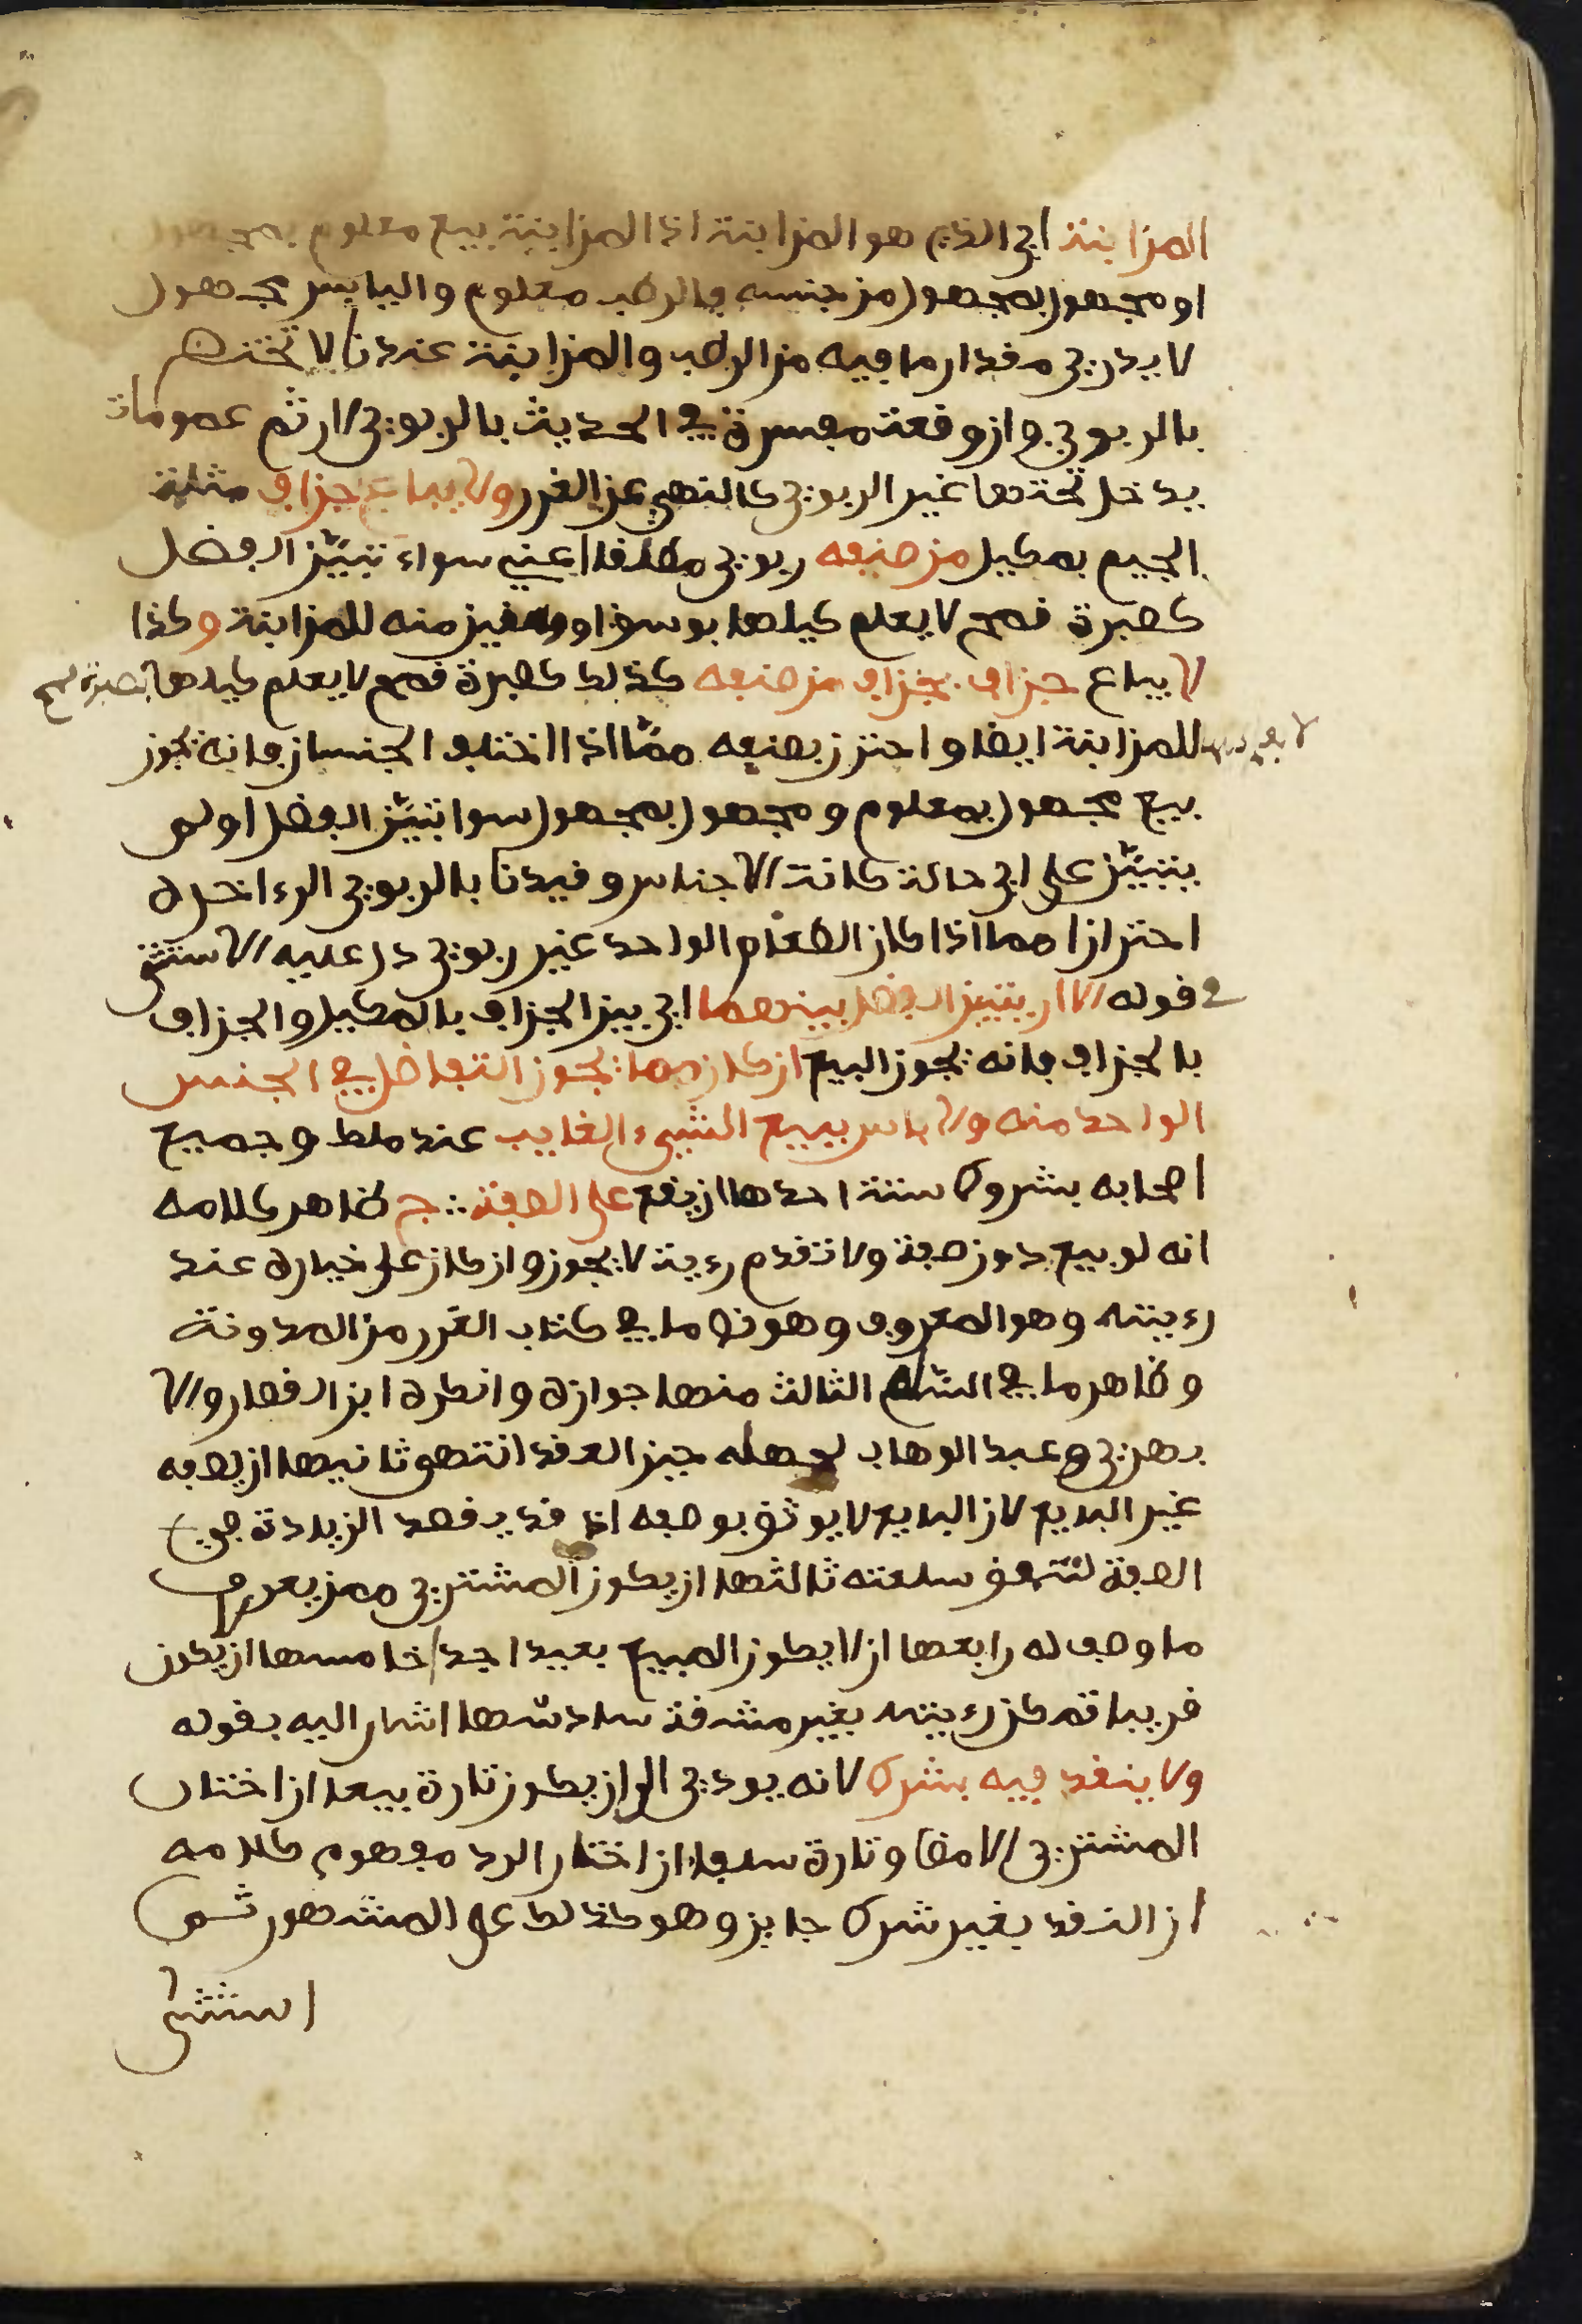 المزابنة اي الذي هو المزابنة اذ المزابنة بيع معلوم بمجهول
او مجهول بمجهول من جنسه فالرطب معلوم واليابس مجهول
لا يدرى مقدار ما فيه من الرطب والمزابنة عندنا لا تختص
بالربوي وان وقعت مفسرة في الحديث بالربوي لان ثم عمومات
يدخل تحتها غير الربوي كالنهي عن الغرر ولا يباع جزاف مثلث
الجيم بمكيل من صنفه ربوي مطلقا اعني سواء تبيّن الفضل
كصبرة قمح لا يعلم كيلها بوسق او وقفيز منه للمزابنة وكذا
لا يباع جزاف بجزاف من صنفه كذلك كصبرة قمح لا يعلم كيلها بصبرة قمح
لا يعلم كيلها للمزابنة ايضا واحترز بصنفه ممّا اذا اختلف الجنسان فانه يجوز
بيع مجهول بمعلوم ومجهول بمجهول سوا تبيّن الفضل او لم
يتبيّن على اي حالة كانت الاجناس وقيدنا بالربوي الى اخره
احترازا مما اذا كان الطعام الواحد غير ربوي دل عليه الاستثنى
في قوله الا ان يتبين الفضل بينهما اي بين الجزاف بالمكيل والجزاف
بالجزاف فانه يجوز البيع ان كان مما يجوز التفاضل في الجنس
الواحد منه ولا باس ببيع الشيء الغايب عند ملك وجميع
اصحابه بشروط ستة احدها ان يقع على الصفة ج ظاهر كلامه
انه لو بيع دون صفة ولا تقدم رءية لا يجوز وان كان على خياره عند
رءيته وهو المعروف وهو نص ما في كتاب الغرر من المدونة
وظاهر ما في السّلم الثالث منها جوازه وانكره ابن القصار والا
بهري وعبد الوهاب لجهله حين العقد انتهى ثانيها ان يصفه
غير البايع لان البايع لا يوثق بوصفه اذ قد يقصد الزيادة في
الصفة لتنفق سلعته ثالثها ان يكون المشتري ممن يعرف
ما وصف له رابعها ان لا يكون المبيع بعيدا جدا خامسها ان يكون
قريبا تمكن رءيته بغير مشقة سادسها اشار اليه بقوله
ولا ينقد فيه بشرط لانه يودي الى ان يكون تارة بيعا ان اختار
المشتري الامضا وتارة سلفا ان اختار الرد مفهوم كلامه
ان النقد بغير شرط جايز وهو كذلك على المشهور ثم
استثنى